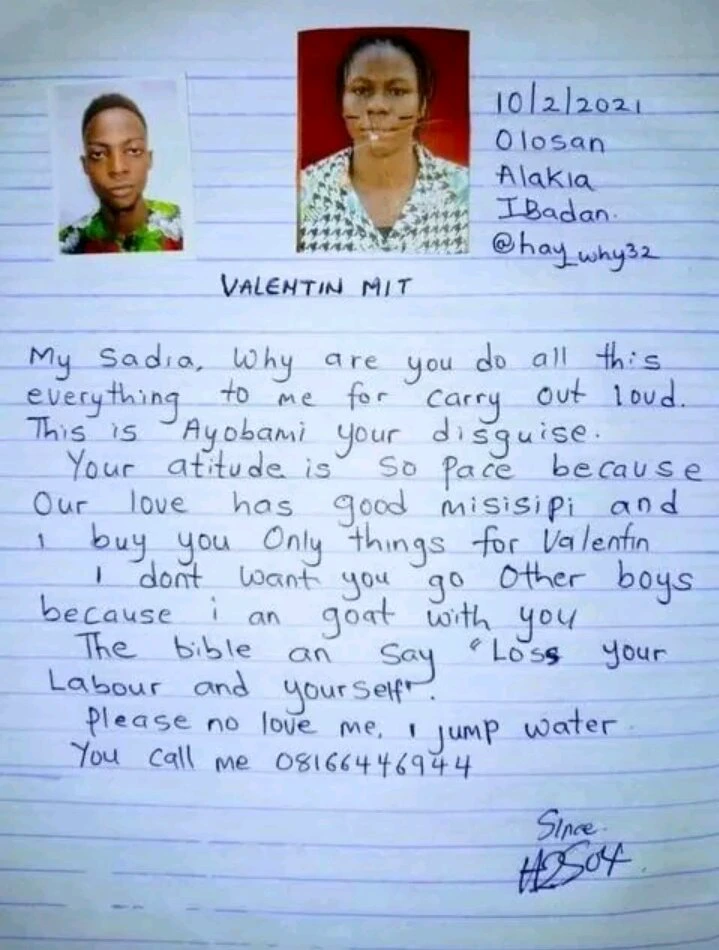 10/2/2021
Olosan
Alakia
IBadan.
@hay_why32
VALENTIN MIT
My Sadia, Why are you do all this
everything to me for carry out loud.
This is Ayobami your disguise.
Your atitude is so pace because
Our love has good misisipi and
i buy you Only things for Valentin
I dont want you go Other boys
because i an goat with you
The bible an say "Loss your
Labour and yourself".
Please no love me, i jump water.
You call me 08166446944
Since.
H2SO4.